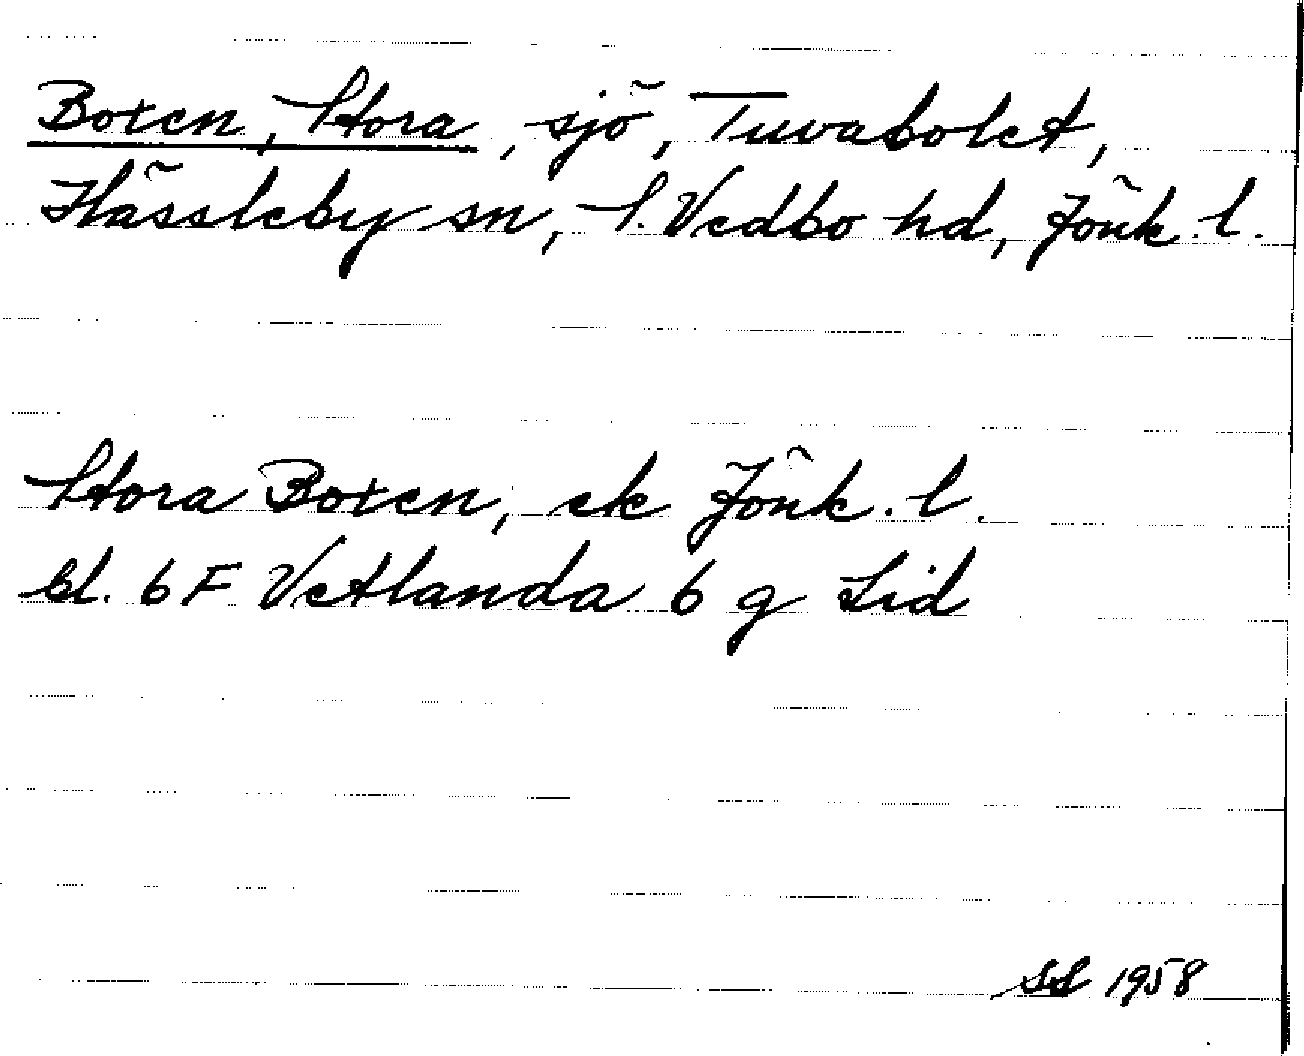 Boxen, Stora, sjö, Tuvabolet,
Hässleby sn, S. Vedbo hd, Jönk. l.
Stora Boxen, ek Jönk. l.
bl. 6 F Vetlanda 6 g Lid
SS 1958